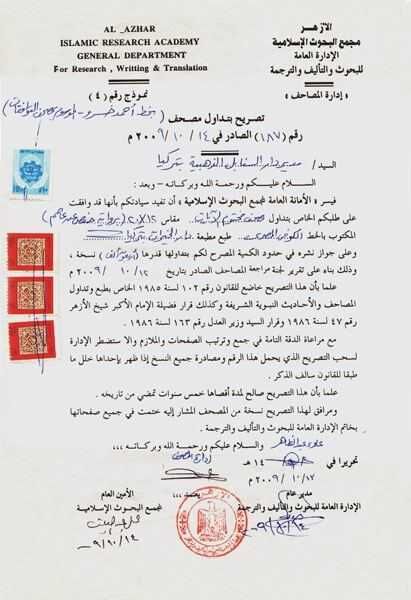 AL_AZHAR
ISLAMIC RESEARCH ACADEMY
GENERAL DEPARTMENT
For Research , Writting & Translation
الأزهر
مجمع البحوث الإسلامية
الإدارة العامة
للبحوث والتأليف والترجمة
« إدارة المصاحف »
نموذج رقم ( ٤ )
تصريح بتداول مصحف
رقم ( ١٨٧ ) الصادر في ١٤ / ١٠ / ٢٠٠٩ م
السيد / مدير دار السنابل الذهبية بتركيا
السلام عليكم ورحمة الله وبركاته – وبعد :
فيسر « الأمانة العامة لمجمع البحوث الإسلامية » أن تفيد سيادتكم بأنها قد وافقت
على طلبكم الخاص بتداول مصحف مقاس ١٥×٢١
المكتوب بالخط طبع مطبعة
وعلى جواز نشره في حدود الكمية المصرح لكم بتداولها قدرها ( ) نسخة ،
وذلك بناء على تقرير لجنة مراجعة المصاحف الصادر بتاريخ ١٢ / ١٠ / ٢٠٠٩ م
علما بأن هذا التصريح خاضع للقانون رقم ١٠٢ لسنة ١٩٨٥ الخاص بطبع وتداول
المصاحف والأحاديث النبوية الشريفة وكذلك قرار فضيلة الإمام الأكبر شيخ الأزهر
رقم ٤٧ لسنة ١٩٨٦ وقرار السيد وزير العدل رقم ١٦٣ لسنة ١٩٨٦ .
مع مراعاة الدقة التامة في جمع وترتيب الصفحات والملازم وإلا ستضطر الإدارة
لسحب التصريح الذي يحمل هذا الرقم ومصادرة جميع النسخ إذا ظهر بإحداها خلل ما
طبقا للقانون سالف الذكر .
علما بأن هذا التصريح صالح لمدة أقصاها خمس سنوات تمضي من تاريخه .
ومرافق لهذا التصريح نسخة من المصحف المشار إليه ختمت في جميع صفحاتها
بخاتم الإدارة العامة للبحوث والتأليف والترجمة .
والسلام عليكم ورحمة الله وبركاته ،،،
إدارة المصحف
تحريرا في ١٤ هـ
١٢ / ١٠ / ٢٠٠٩ م
مدير عام
الإدارة العامة للبحوث والتأليف والترجمة
يعتمد ،،،
الأمين العام
لمجمع البحوث الإسلامية
الأزهر